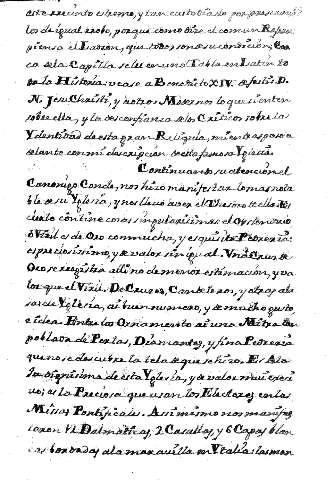 este recinto estremo, y tan custodiado por presun
los de igual robo, porque como dice el comun Refran
piensa el Ladron, que todos son de su condicion, Cer
ca de la Capilla se lee en una Tabla en Latin to
da la Historia: vease a Benedicto XIV. de festis D.
N. Jesu Christi, y a otros Modernos lo que sienten
sobre ella, y la desconfianza de los Criticos sobre la
Ydentidad de esta gran Reliquia, mientras paso a
delante con mi descripcion de esta famosa Yglesia.
Continuando su atencion el
Canonigo Conde, nos hizo manifestar lo mas nota
ble de su Yglesia, y nos llevó a ver el Thesoro
contiene cosas singularisimas: el Ostensorio
ó Viril es de Oro con mucha, y esquisita Pedreria:
es preciosissimo, y de valor sin igual. Un
Oro se registra alli no de menor estimacion, y va
lor que el Viril. De Cruzes, Candeleros, y otras ala
jas de Yglesia, ai buen numero, y de mucho gusto
e idea. Entre los Ornamentos ai una Mitra tan
poblada de Perlas, Diamantes, y fina Pedreria
que no se descubre la tela de que se hizo. Es Ala
ja dignisima de esta Yglesia, y de valor mui excesi
vo; es la Preciosa que usan los Electores en las
Missas Pontificales. Assimismo nos manifes
taron 12. Dalmaticas, 2 Casullas, y 6 Capas blan
cas bordadas a la maravilla en Ytalia: las mon